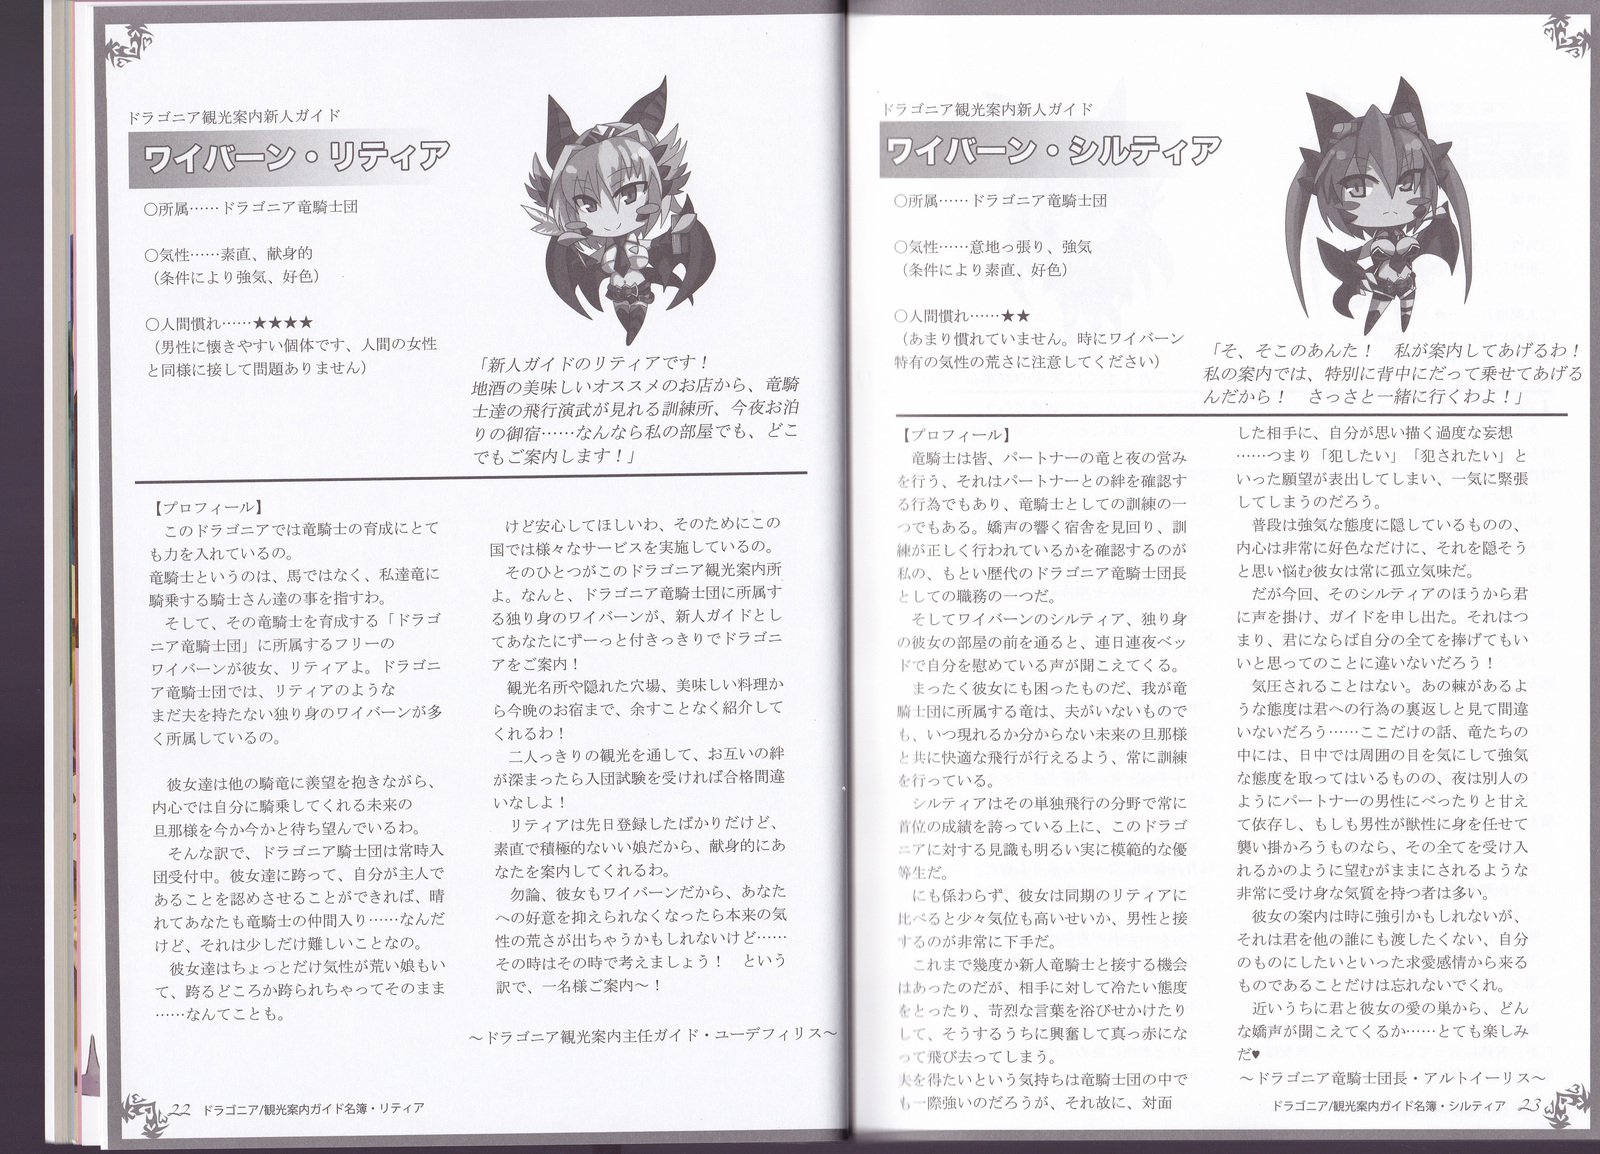 ドラゴニア観光案内新人ガイド
ワイバーン・リティア
○所属……ドラゴニア竜騎士団
○気性……素直、献身的
（条件により強気、好色）
○人間慣れ……★★★★
（男性に懐きやすい個体です、人間の女性
と同様に接して問題ありません）
「新人ガイドのリティアです！
地酒の美味しいオススメのお店から、竜騎
士達の飛行演武が見れる訓練所、今夜お泊
りの御宿……なんなら私の部屋でも、どこ
でもご案内します！」
【プロフィール】
このドラゴニアでは竜騎士の育成にとて
も力を入れているの。
竜騎士というのは、馬ではなく、私達竜に
騎乗する騎士さん達の事を指すわ。
そして、その竜騎士を育成する「ドラゴ
ニア竜騎士団」に所属するフリーの
ワイバーンが彼女、リティアよ。ドラゴニ
ア竜騎士団では、リティアのような
まだ夫を持たない独り身のワイバーンが多
く所属しているの。
彼女達は他の騎竜に羨望を抱きながら、
内心では自分に騎乗してくれる未来の
旦那様を今か今かと待ち望んでいるわ。
そんな訳で、ドラゴニア騎士団は常時入
団受付中。彼女達に跨って、自分が主人で
あることを認めさせることができれば、晴
れてあなたも竜騎士の仲間入り……なんだ
けど、それは少しだけ難しいことなの。
彼女達はちょっとだけ気性が荒い娘もい
て、跨るどころか跨られちゃってそのまま
……なんてことも。
けど安心してほしいわ、そのためにこの
国では様々なサービスを実施しているの。
そのひとつがこのドラゴニア観光案内所
よ。なんと、ドラゴニア竜騎士団に所属す
る独り身のワイバーンが、新人ガイドとし
てあなたにずーっと付きっきりでドラゴニ
アをご案内！
観光名所や隠れた穴場、美味しい料理か
ら今晩のお宿まで、余すことなく紹介して
くれるわ！
二人っきりの観光を通して、お互いの絆
が深まったら入団試験を受ければ合格間違
いなしよ！
リティアは先日登録したばかりだけど、
素直で積極的ないい娘だから、献身的にあ
なたを案内してくれるわ。
勿論、彼女もワイバーンだから、あなた
への好意を抑えられなくなったら本来の気
性の荒さが出ちゃうかもしれないけど……
その時はその時で考えましょう！　という
訳で、一名様ご案内～！
～ドラゴニア観光案内主任ガイド・ユーデフィリス～
22 ドラゴニア/観光案内ガイド名簿・リティア
ドラゴニア観光案内新人ガイド
ワイバーン・シルティア
○所属……ドラゴニア竜騎士団
○気性……意地っ張り、強気
（条件により素直、好色）
○人間慣れ……★★
（あまり慣れていません。時にワイバーン
特有の気性の荒さに注意してください）
「そ、そこのあんた！　私が案内してあげるわ！
私の案内では、特別に背中にだって乗せてあげる
んだから！　さっさと一緒に行くわよ！」
【プロフィール】
竜騎士は皆、パートナーの竜と夜の営み
を行う、それはパートナーとの絆を確認す
る行為でもあり、竜騎士としての訓練の一
つでもある。嬌声の響く宿舎を見回り、訓
練が正しく行われているかを確認するのが
私の、もとい歴代のドラゴニア竜騎士団長
としての職務の一つだ。
そしてワイバーンのシルティア、独り身
の彼女の部屋の前を通ると、連日連夜ベッ
ドで自分を慰めている声が聞こえてくる。
まったく彼女にも困ったものだ、我が竜
騎士団に所属する竜は、夫がいないもので
も、いつ現れるか分からない未来の旦那様
と共に快適な飛行が行えるよう、常に訓練
を行っている。
シルティアはその単独飛行の分野で常に
首位の成績を誇っている上に、このドラゴ
ニアに対する見識も明るい実に模範的な優
等生だ。
にも係わらず、彼女は同期のリティアに
比べると少々気位も高いせいか、男性と接
するのが非常に下手だ。
これまで幾度か新人竜騎士と接する機会
はあったのだが、相手に対して冷たい態度
をとったり、苛烈な言葉を浴びせかけたり
して、そうするうちに興奮して真っ赤にな
って飛び去ってしまう。
夫を得たいという気持ちは竜騎士団の中で
も一際強いのだろうが、それ故に、対面
した相手に、自分が思い描く過度な妄想
……つまり「犯したい」「犯されたい」と
いった願望が表出してしまい、一気に緊張
してしまうのだろう。
普段は強気な態度に隠しているものの、
内心は非常に好色なだけに、それを隠そう
と思い悩む彼女は常に孤立気味だ。
だが今回、そのシルティアのほうから君
に声を掛け、ガイドを申し出た。それはつ
まり、君にならば自分の全てを捧げてもい
いと思ってのことに違いないだろう！
気圧されることはない。あの棘があるよ
うな態度は君への行為の裏返しと見て間違
いないだろう……ここだけの話、竜たちの
中には、日中では周囲の目を気にして強気
な態度を取ってはいるものの、夜は別人の
ようにパートナーの男性にべったりと甘え
て依存し、もしも男性が獣性に身を任せて
襲い掛かろうものなら、その全てを受け入
れるかのように望むがままにされるような
非常に受け身な気質を持つ者は多い。
彼女の案内は時に強引かもしれないが、
それは君を他の誰にも渡したくない、自分
のものにしたいといった求愛感情から来る
ものであることだけは忘れないでくれ。
近いうちに君と彼女の愛の巣から、どん
な嬌声が聞こえてくるか……とても楽しみ
だ♥
～ドラゴニア竜騎士団長・アルトイーリス～
ドラゴニア/観光案内ガイド名簿・シルティア 23